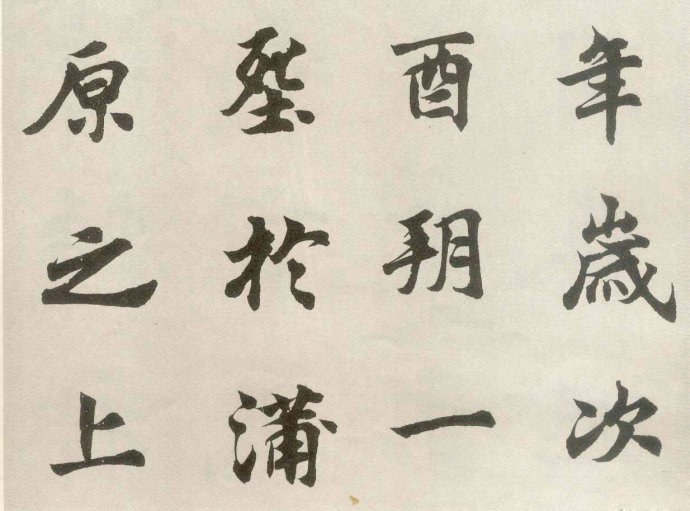 年歲次
酉朔一
塋於蒲
原之上